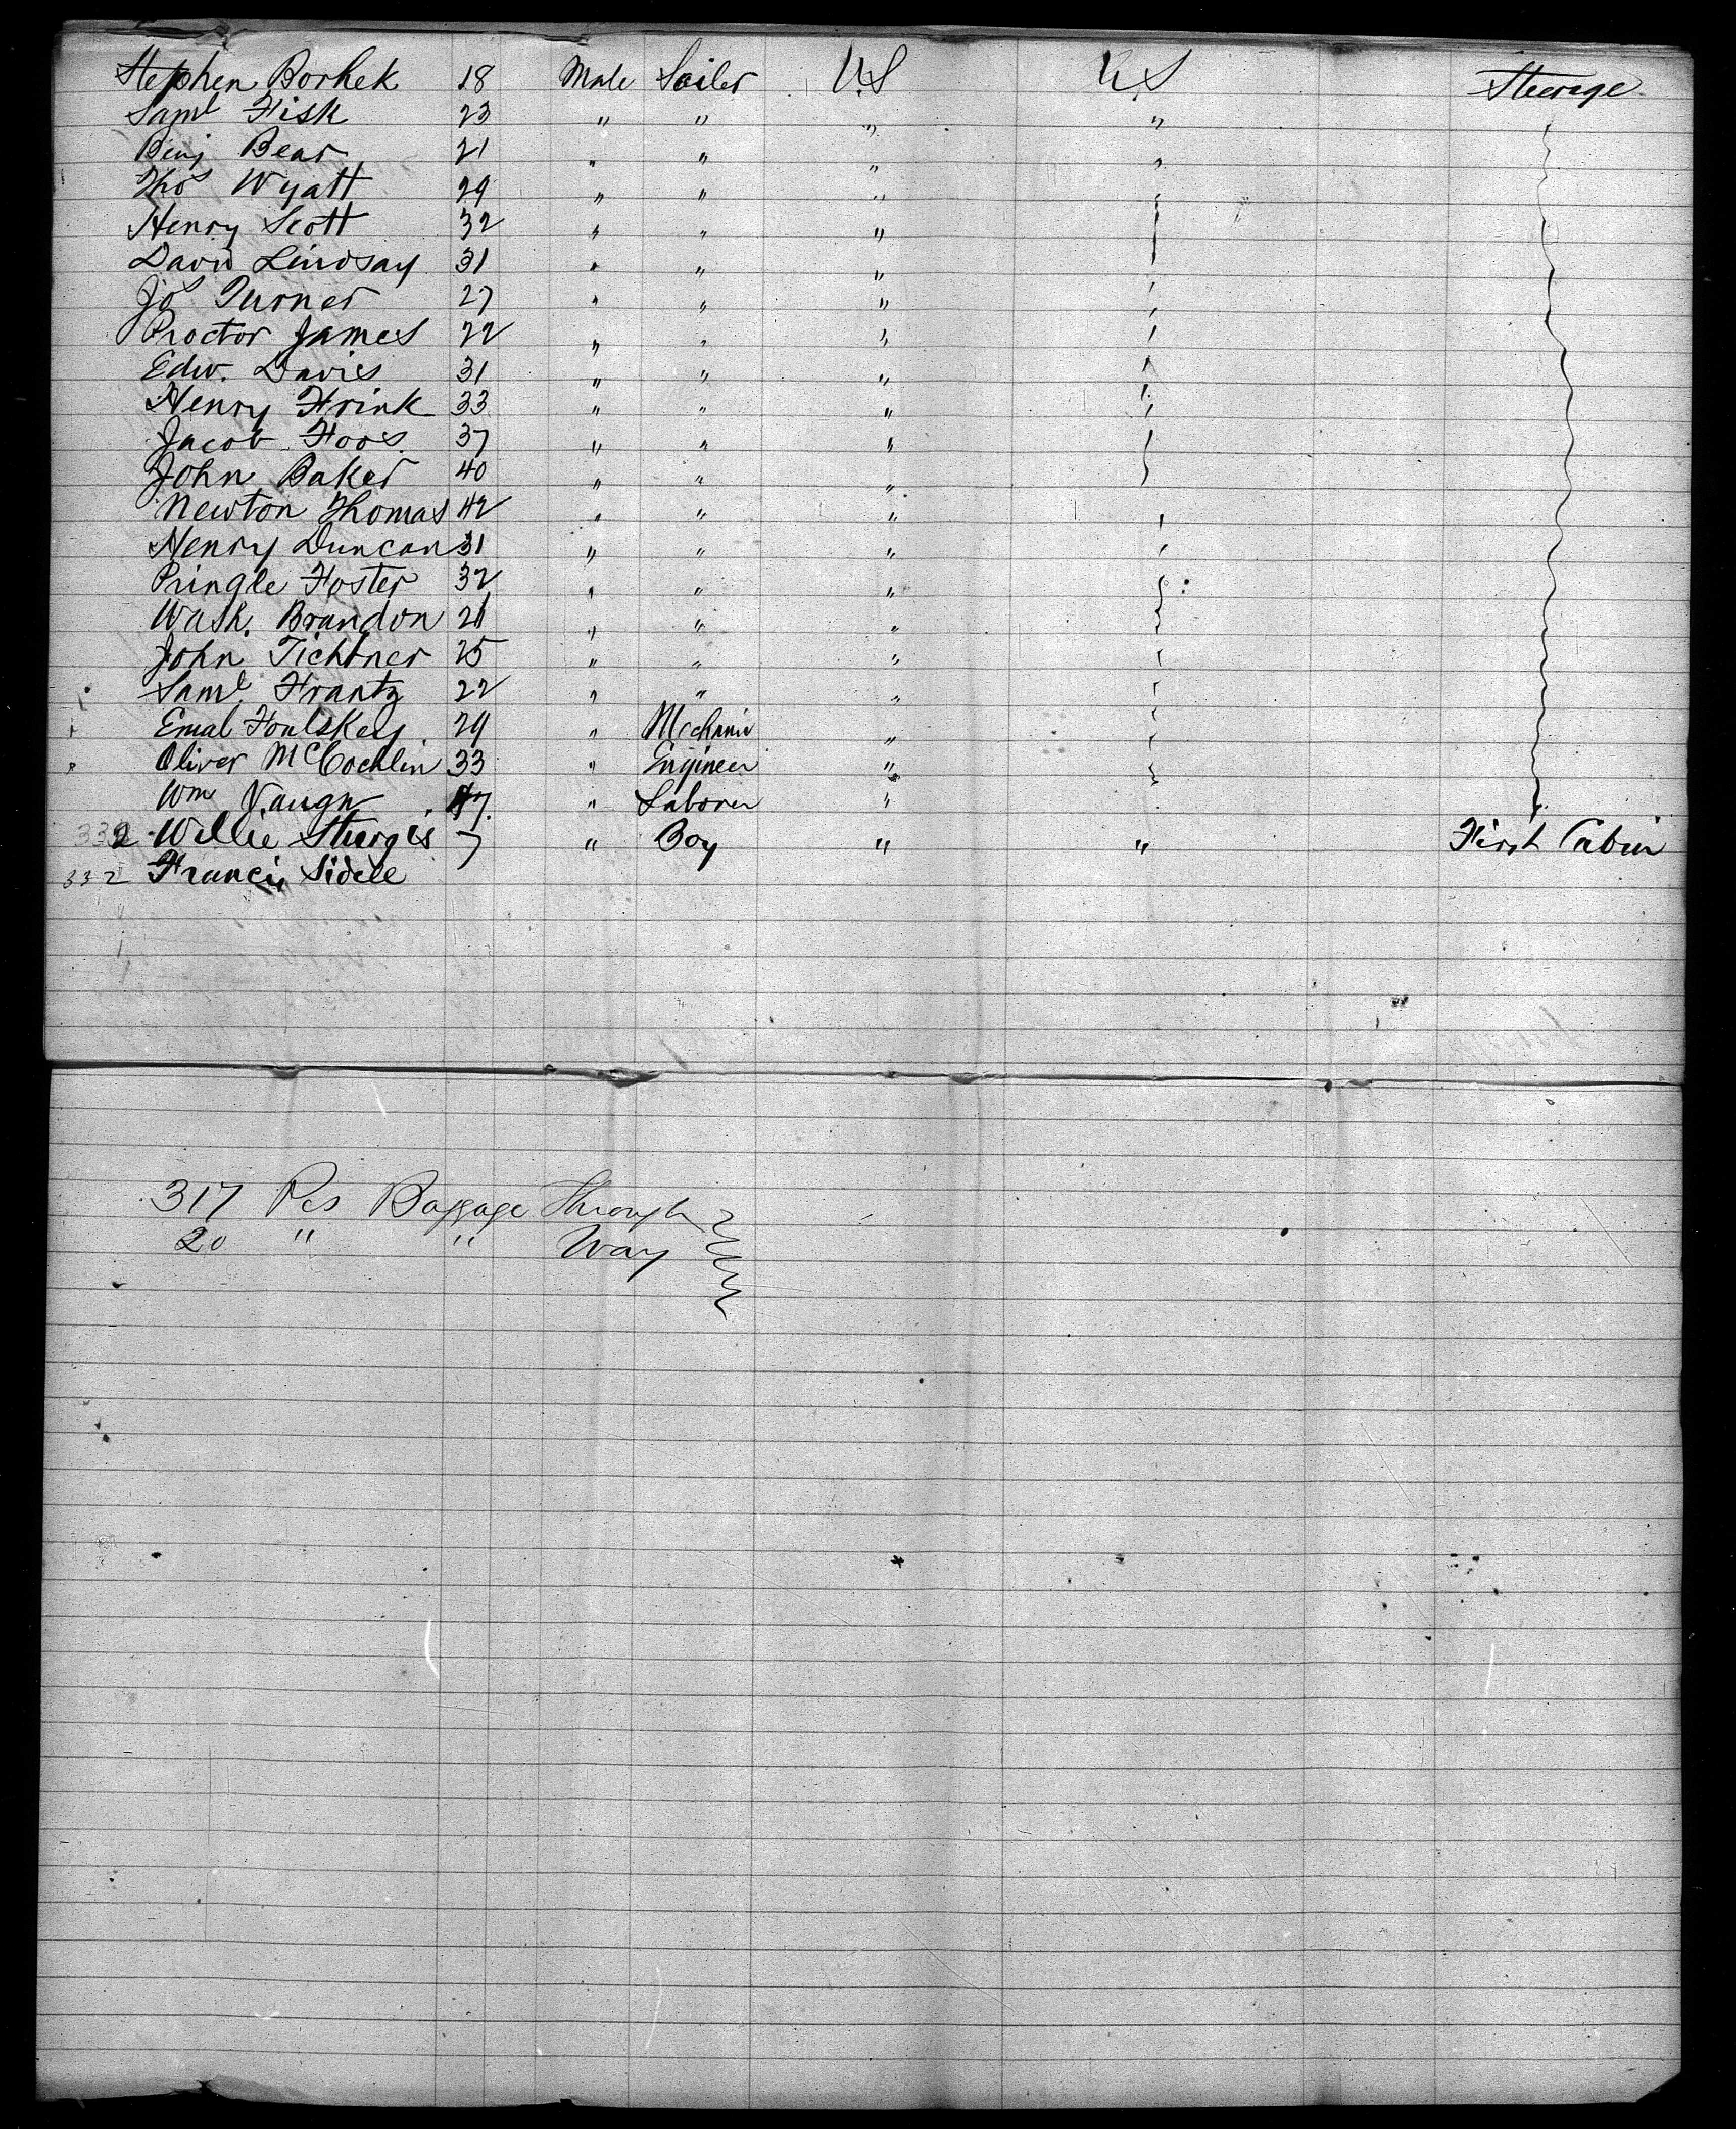 Stephen Borhek 18 Male Sailor U.S U.S Steerage
Saml Fisk 23 " " " "
Benj Bear 21 " " " "
Thos Wyatt 29 " " "
Henry Scott 32 " " "
David Lindsay 31 " " "
Jos Turner 27 " " "
Proctor James 22 " " "
Edw. Davis 31 " " "
Henry Frink 33 " " "
Jacob Foos 37 " " "
John Baker 40 " " "
Newton Thomas 42 " " "
Henry Duncan 31 " " "
Pringle Foster 32 " " "
Wash. Brandon 21 " " "
John Tichtner 25 " " "
Saml Frantz 22 " " "
Emal Foulskey 29 " Mechanic "
Oliver McCochlin 33 " Engineer "
Wm Vaugn 47 " Laborer "
2 Willie Sturgis 7 " Boy " " First Cabin
332 Francis Sidele
317 Pcs Baggage Through
20 " " Way